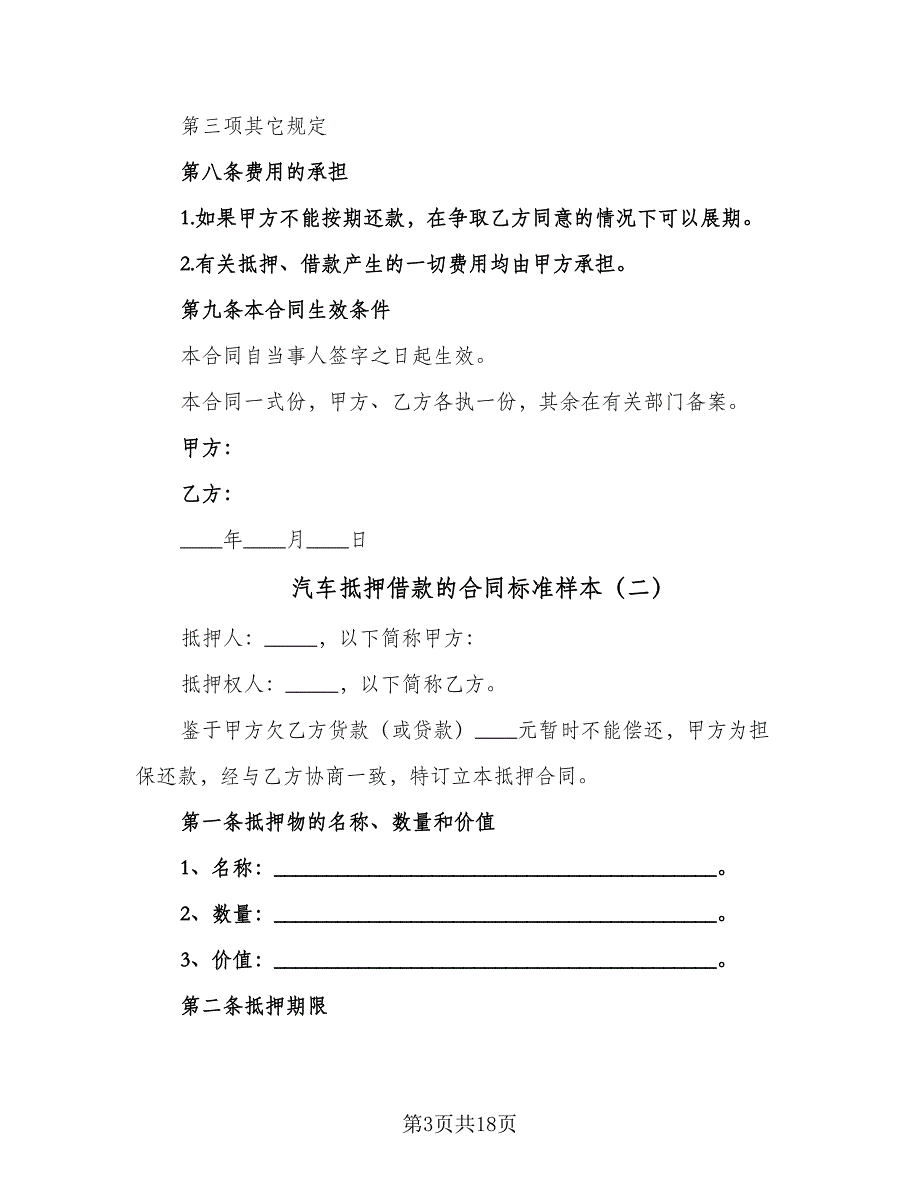 第三项其它规定
第八条费用的承担
1.如果甲方不能按期还款，在争取乙方同意的情况下可以展期。
2.有关抵押、借款产生的一切费用均由甲方承担。
第九条本合同生效条件
本合同自当事人签字之日起生效。
本合同一式份，甲方、乙方各执一份，其余在有关部门备案。
甲方：
乙方：
____年____月____日
汽车抵押借款的合同标准样本（二）
抵押人：_____，以下简称甲方：
抵押权人：_____，以下简称乙方。
鉴于甲方欠乙方货款（或贷款）____元暂时不能偿还，甲方为担
保还款，经与乙方协商一致，特订立本抵押合同。
第一条抵押物的名称、数量和价值
1、名称：__________________________________________。
2、数量：__________________________________________。
3、价值：__________________________________________。
第二条抵押期限
第3页共18页